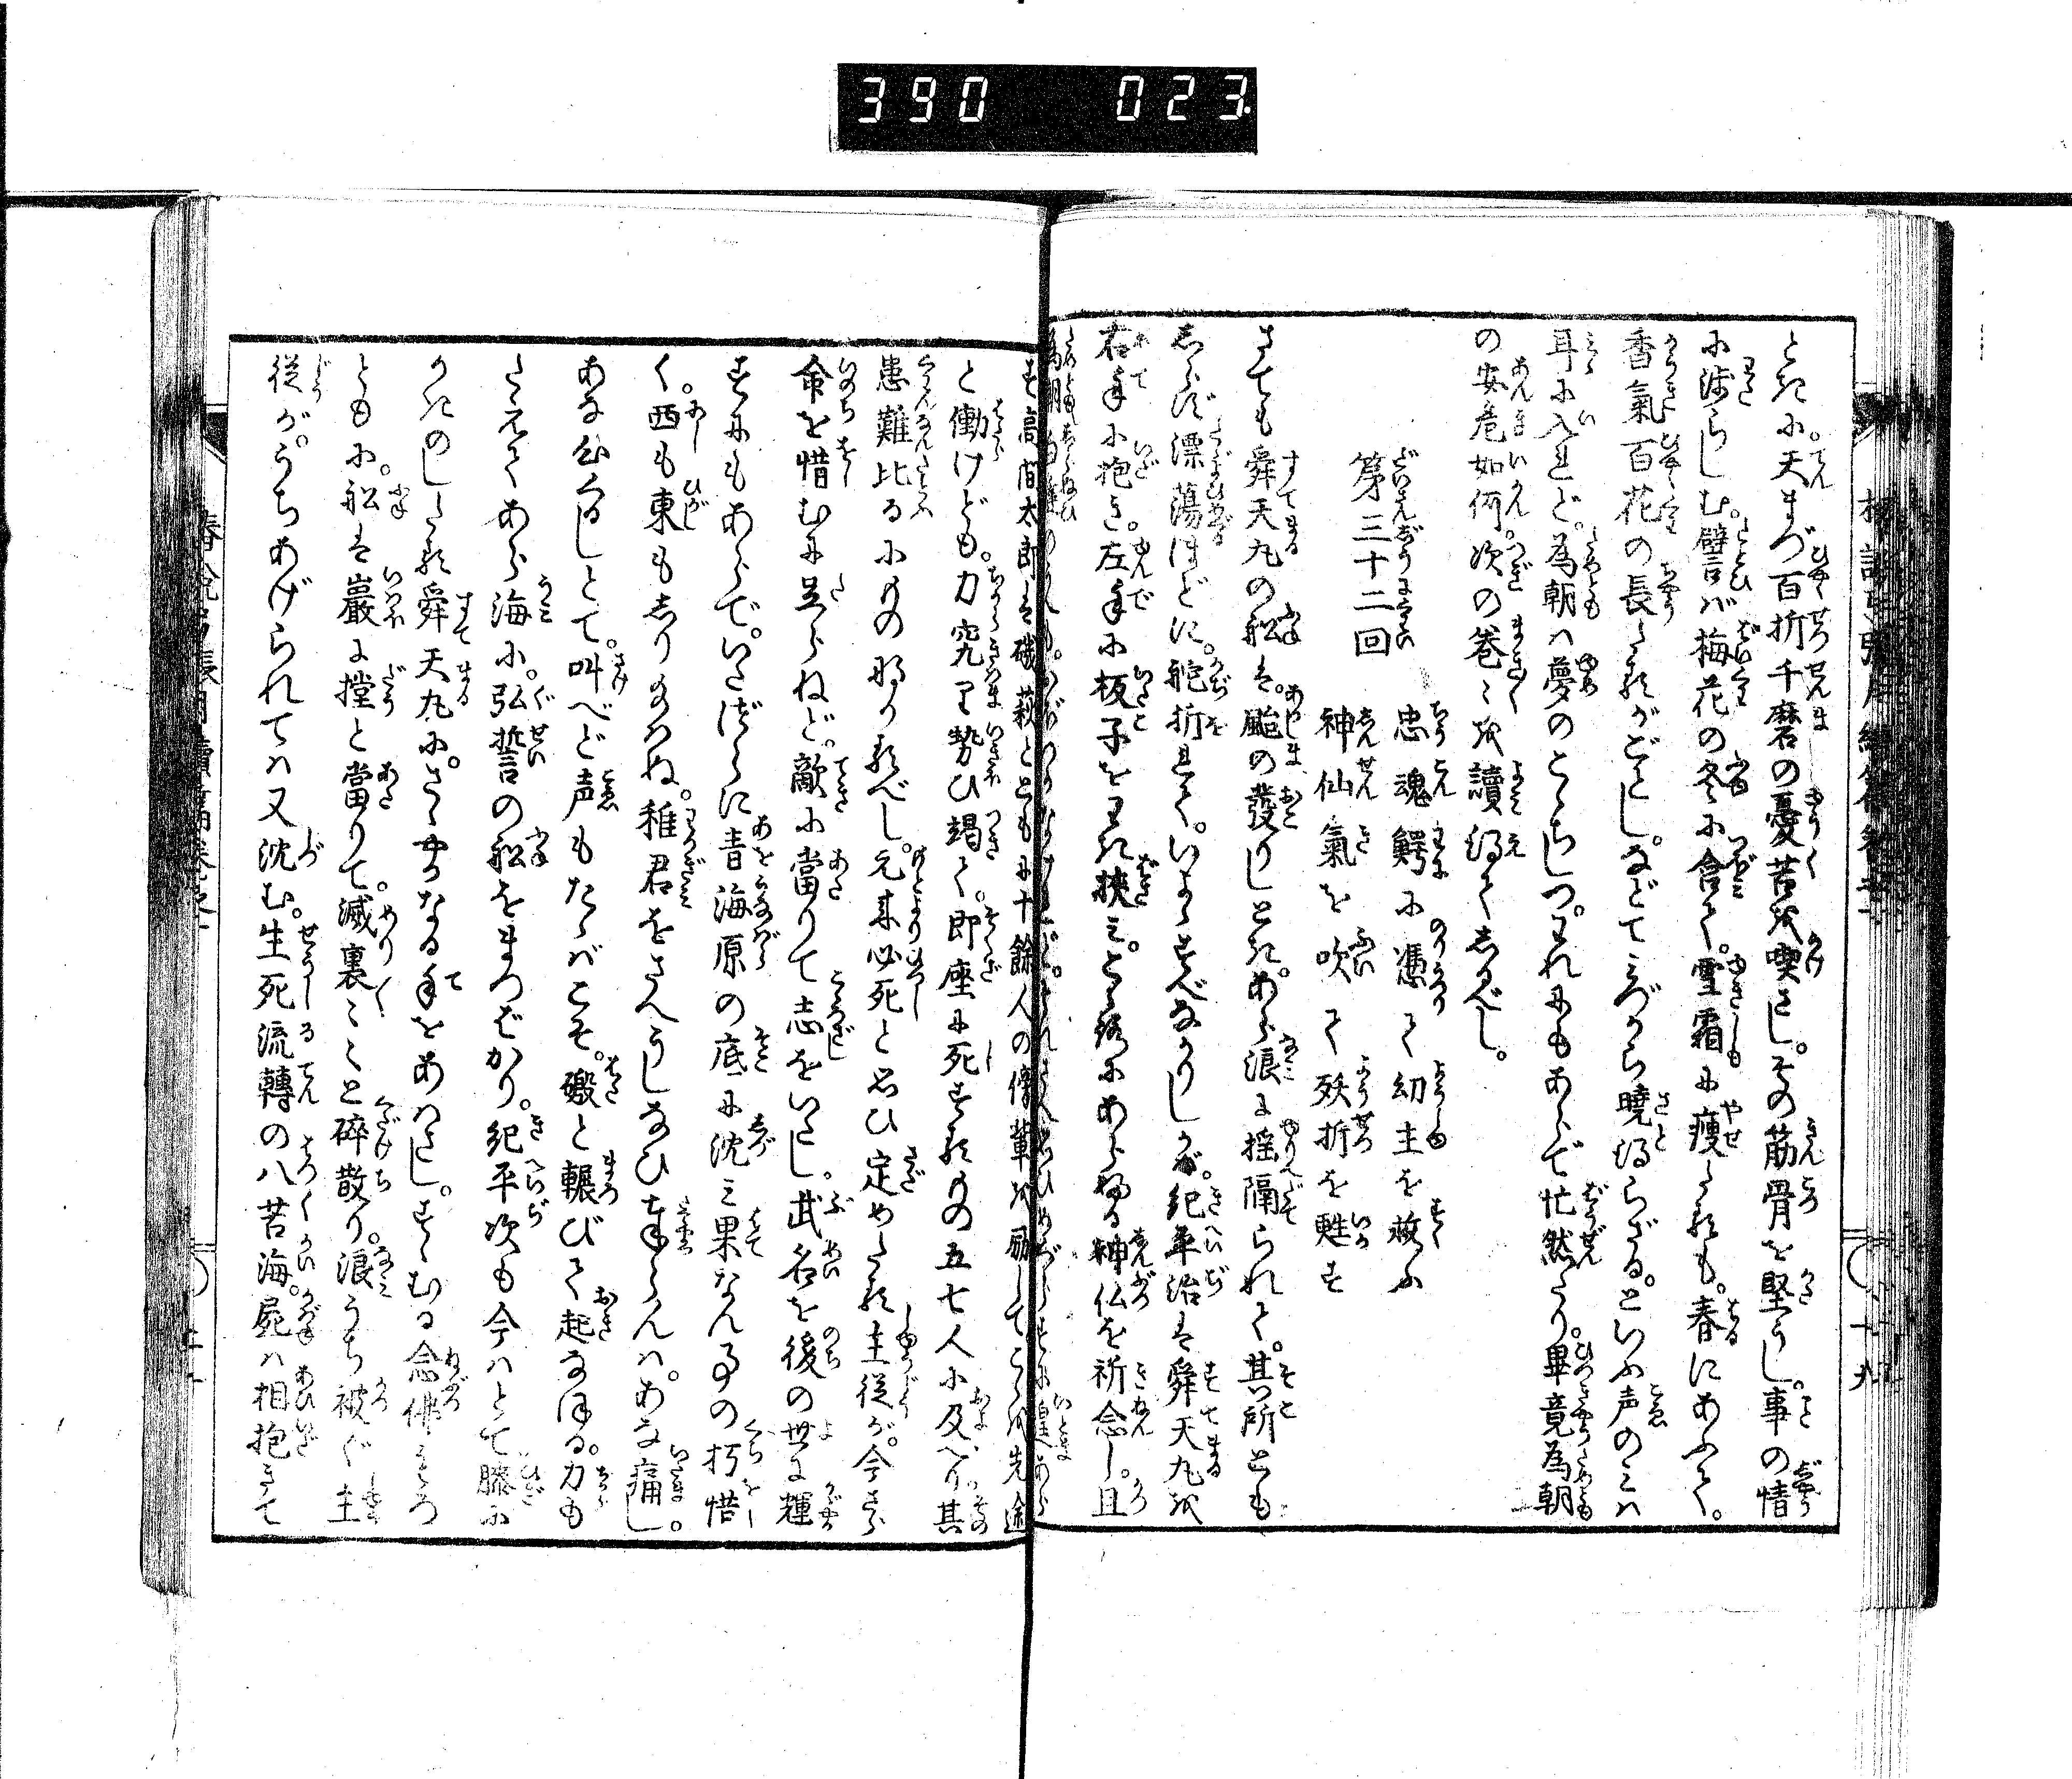 390 023
ときに。天まづ百折千磨の憂苦を喫さし。その筋骨を堅うし。事の情
に渉らしむ。譬ば梅花の冬に含て。雪霜に痩たるも。春にあふて。
香氣百花の長たるがごとし。などてみづから曉得らざる。といふ声のみは
耳に入れど。為朝は夢のこゝちしつ。われにもあらで忙然たり。畢竟為朝
の安危如何。次の巻々を讀得てしるべし。
第三十二回
忠魂鰐に憑て幼主を救ふ
神仙氣を吹て殀折を甦す
さても舜天丸の舩は。颱の發りしとき。あら浪に揺隔られて。其所とも
しらず漂蕩ほどに。舵折れて。いまはすべなかりしが。紀平治は舜天丸を
右手に抱き。左手に板子をわき挟み。こゝろにあらゆる神仏を祈念し。且
す。高間太郎は磯萩とともに十餘人の傍輩を励してこゝを先途
と働けども。力究り勢ひ竭て。即座に死するもの五七人に及べり其
患難比るにものなかるべし。元来必死と思ひ定めたる主従が。今さら
命を惜むに足らねど。敵に當りて志をいたし。武名を後の世に輝
すにもあらで。いたづらに青海原の底に沈み果なん事の朽惜
く。西も東もしりたまはぬ。稚君をさへうしなひ奉らんは。あな痛し。
あな公るしとて。叫べど声もたゝばこそ。礑と輾びて起なほる。力も
たえてあら海に。弘誓の船をまつばかり。紀平次も今はとて膝に
かきのしたる舜天丸に。さゝやかなる手をあはさし。すゝむる念佛もろ
ともに。舩は巖に撞と當りて。滅裏々々と碎散り。浪うち被ぐ主
従が。うちあげられては又沈む。生死流轉の八苦海。屍は相抱きて